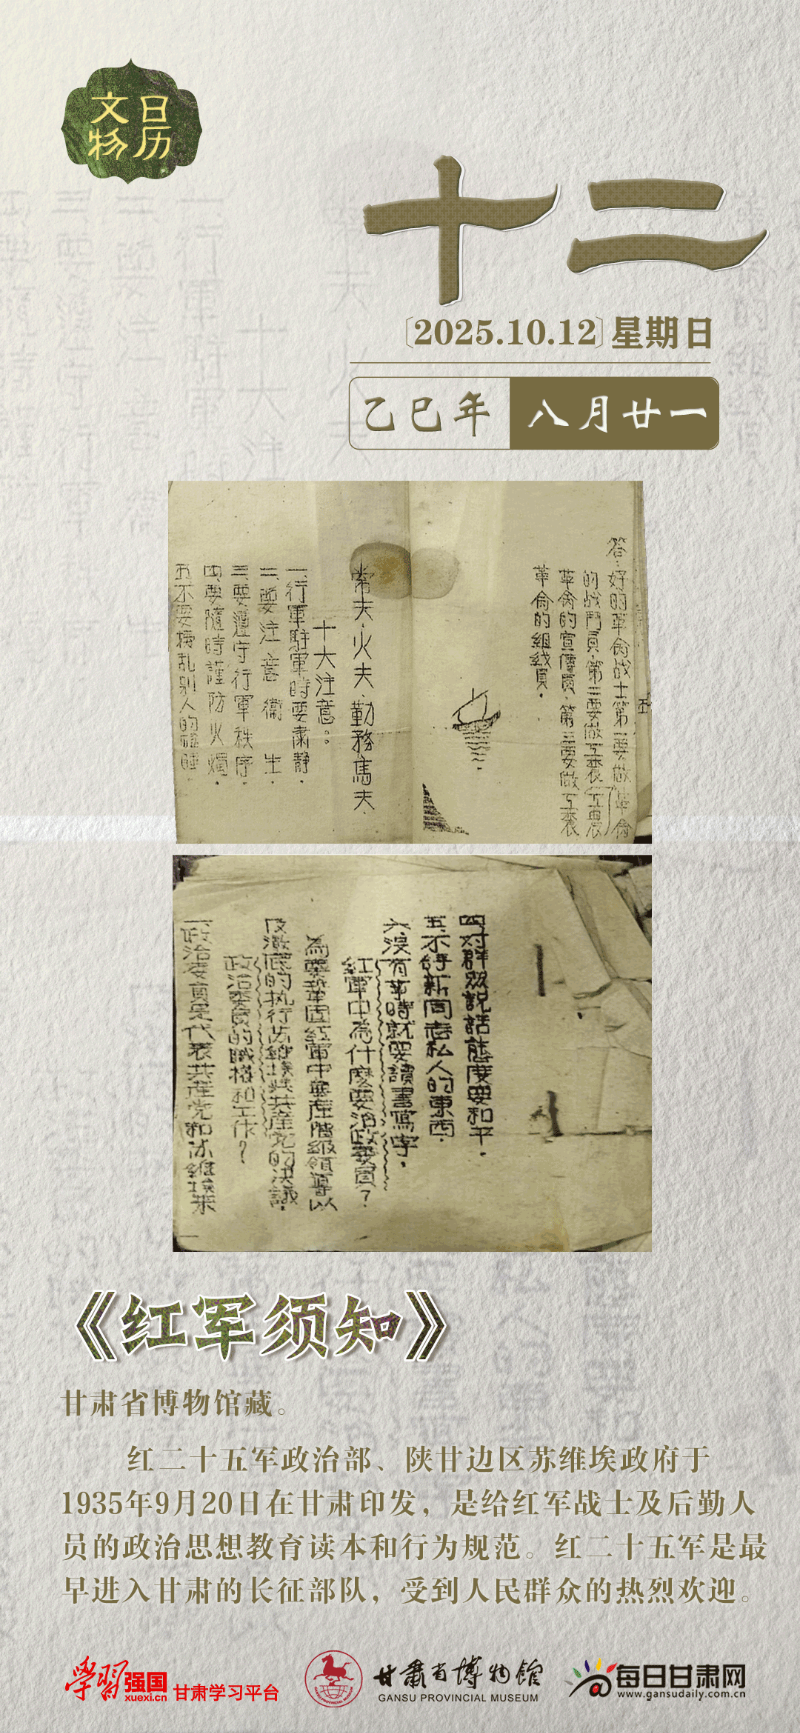 文物
日历
十二
[2025.10.12]星期日
乙巳年 八月廿一
答：好的革命战士第一要做革命
的战鬥員·第二要做工農
革命的宣傳員·第三要做工農
革命的組織員·
常夫·火夫·勤務馬夫·
十大注意：
一行軍駐軍時要肅静·
二要注意衞生·
三要遵守行軍秩序·
四要隨時謹防火燭·
五不要擾乱别人的
四对群眾説話態度要和平·
五不許新同志私人的東西·
六没有事時就要讀書寫字·
紅軍中為什麽要政治委員？
為要鞏固紅軍中無産階級領導以
及澈底的执行苏維埃共産党的决議·
政治委員的職權和工作？
一政治委員是代表共産党和苏維埃来
《红军须知》
甘肃省博物馆藏。
红二十五军政治部、陕甘边区苏维埃政府于
1935年9月20日在甘肃印发，是给红军战士及后勤人
员的政治思想教育读本和行为规范。红二十五军是最
早进入甘肃的长征部队，受到人民群众的热烈欢迎。
学习强国
xuexi.cn
甘肃学习平台
甘肃省博物馆
GANSU PROVINCIAL MUSEUM
每日甘肃网
www.gansudaily.com.cn